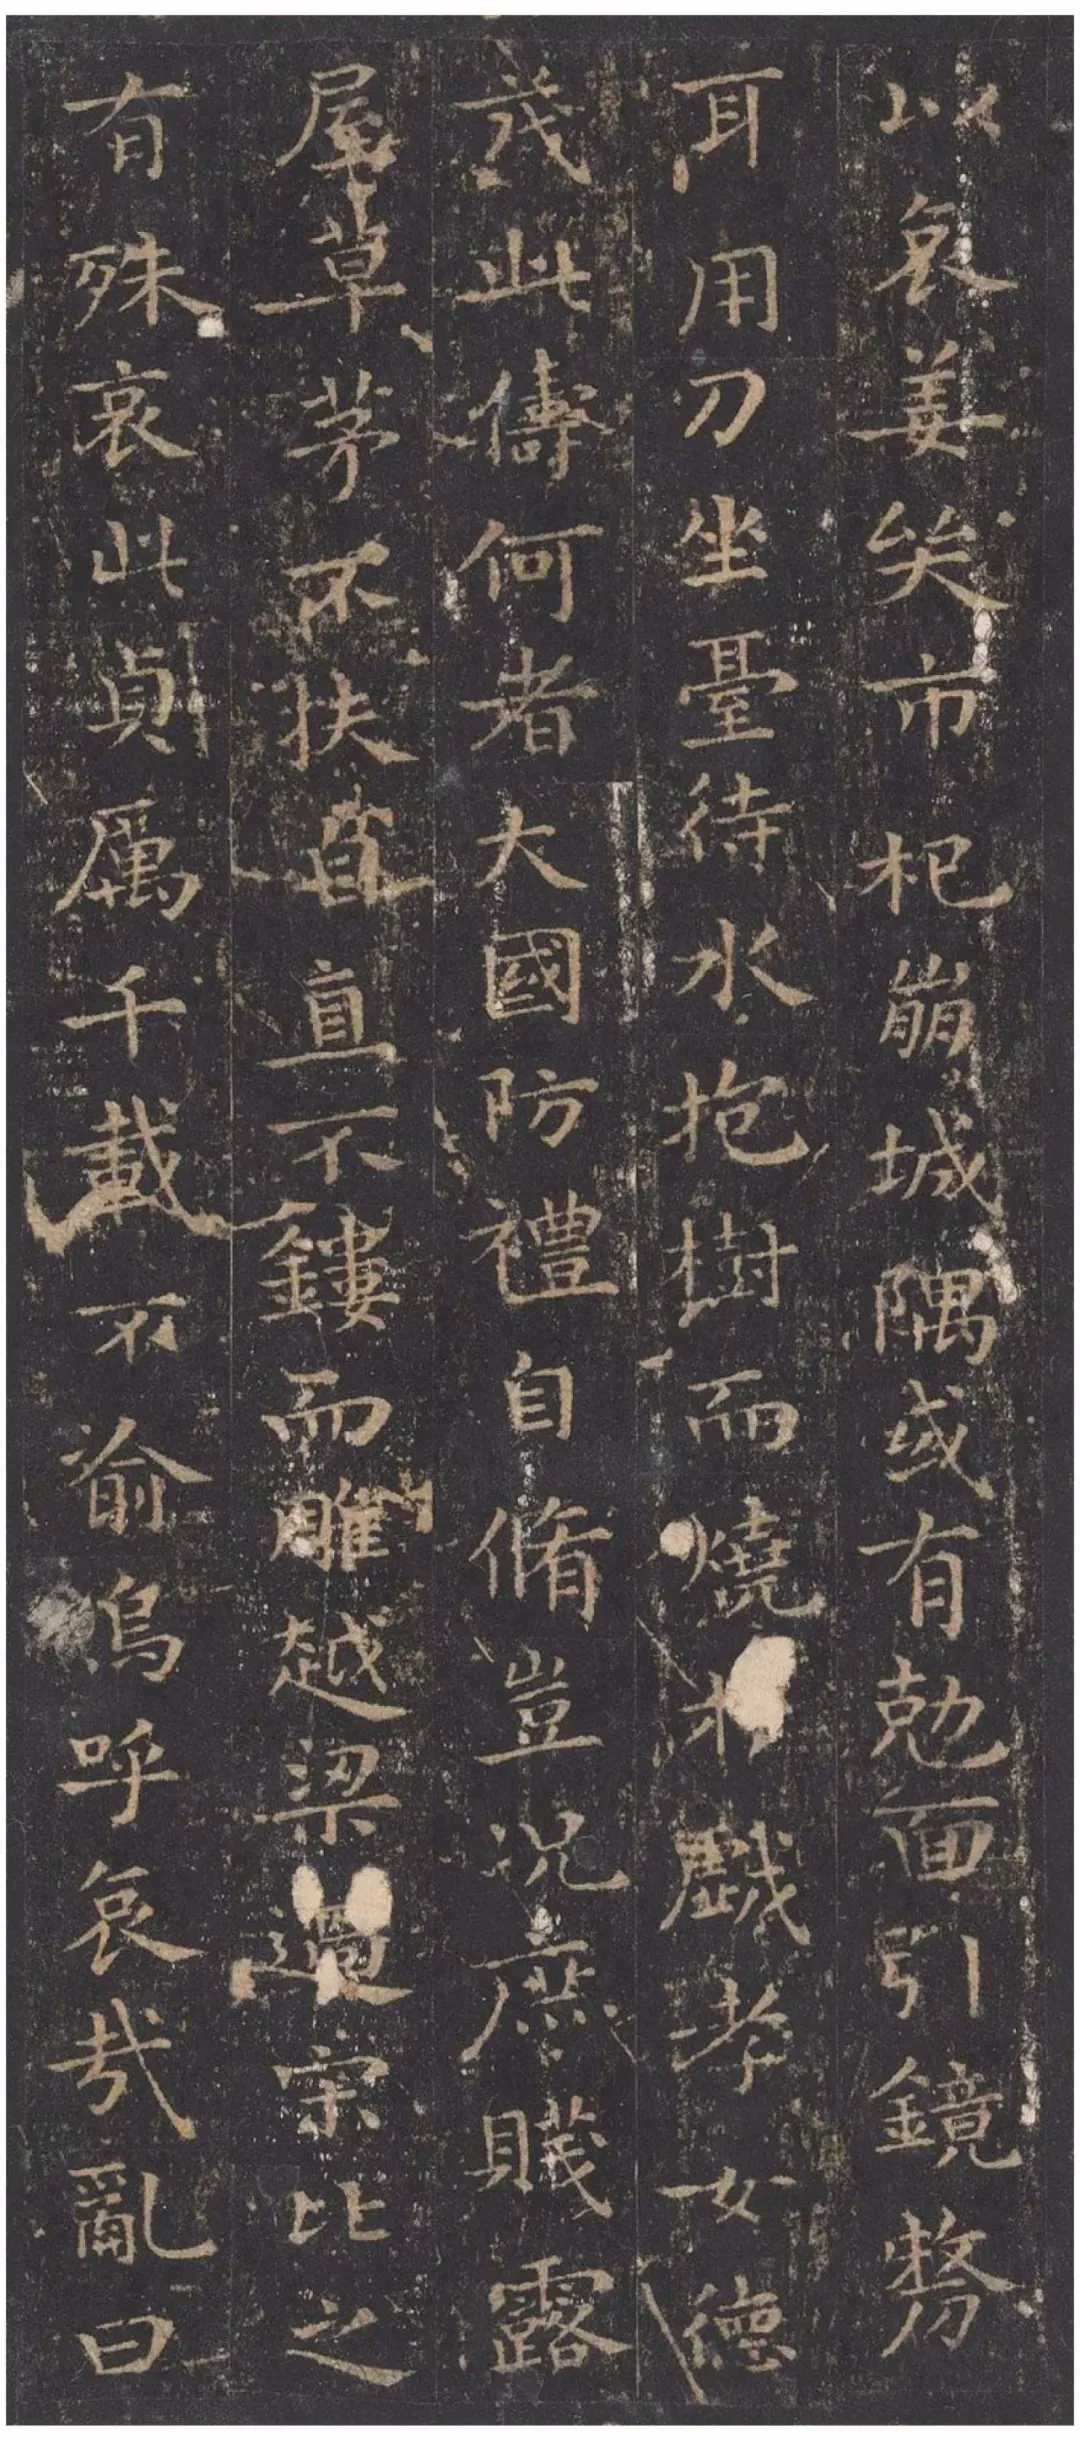 以哀姜哭市杞崩城隅或有勉面引鏡剺
耳用刀坐臺待水抱樹而燒於戲孝女德
茂此儔何者大國防禮自脩豈況庶賤露
屋草茅不扶自直不鏤而雕越梁過宋比之
有殊哀此貞厲千載不渝嗚呼哀哉亂曰